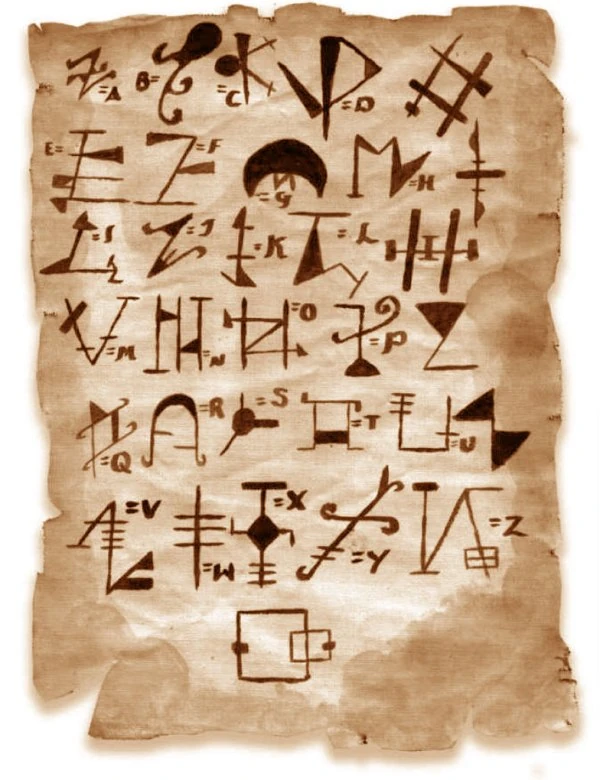 =A B= =C =D
E= =F =G =H
=I =J =K =L
=M =N =O =P
=Q =R =S =T =U
=V =W =X =Y =Z